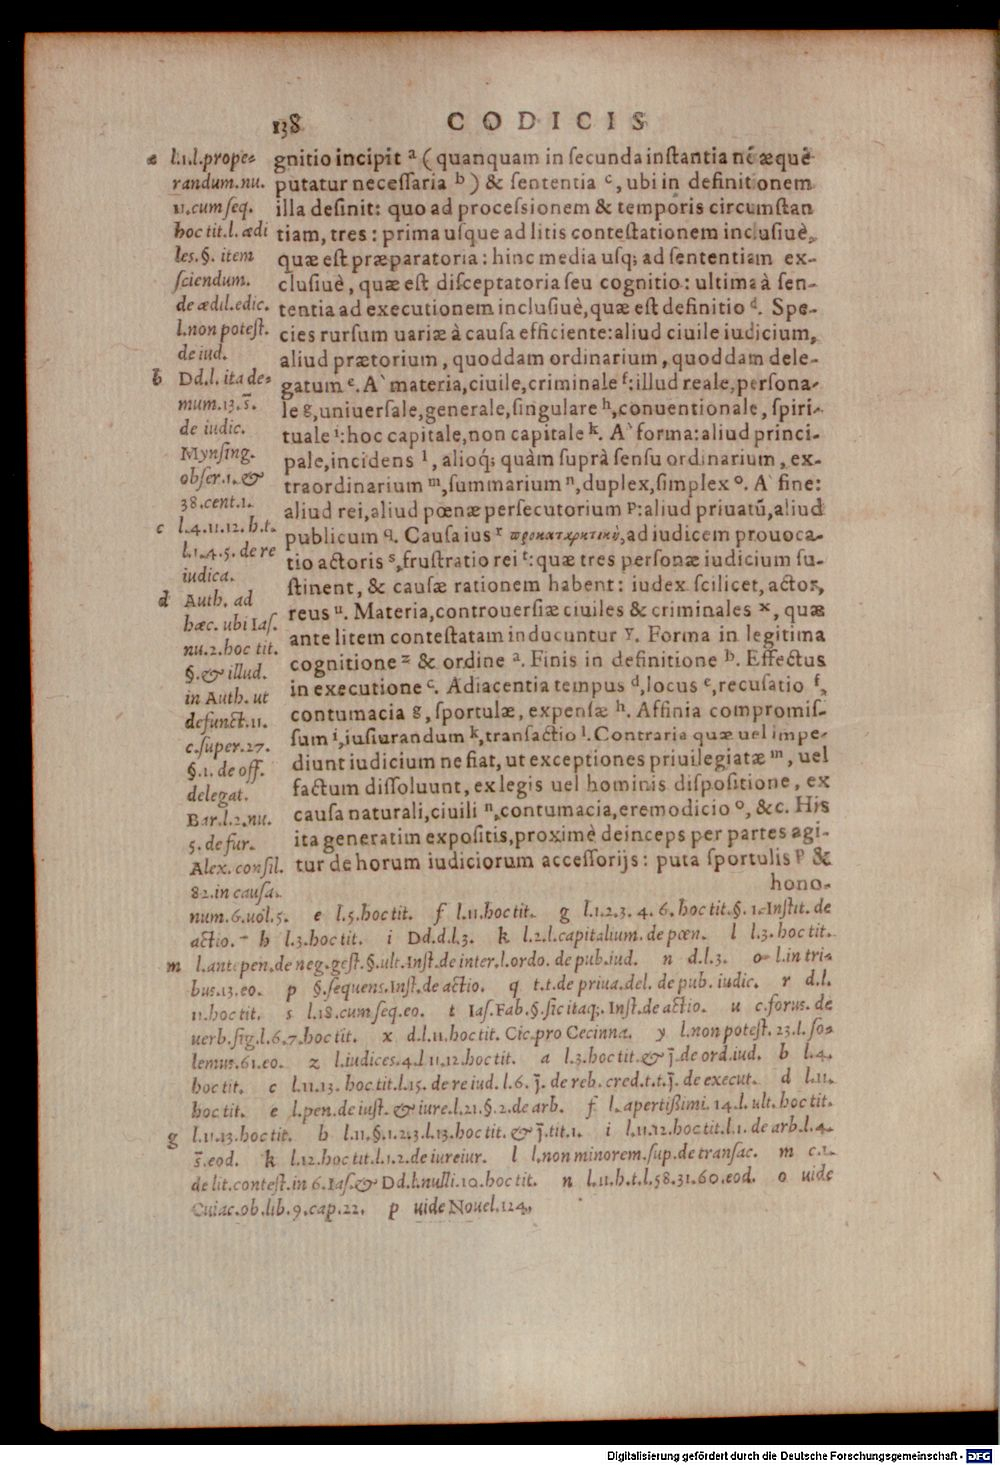 138 CODICIS
gnitio incipit ᵃ (quanquam in ſecunda inſtantia nō æquè
putatur neceſſaria ᵇ) & ſententia ᶜ, ubi in definitionem
illa deſinit: quo ad proceſsionem & temporis circumſtan
tiam, tres: prima uſque ad litis conteſtationem incluſiuè,
quæ eſt præparatoria: hinc media uſq; ad ſententiam ex-
cluſiuè, quæ eſt diſceptatoria ſeu cognitio: ultima à ſen-
tentia ad executionem incluſiuè, quæ eſt definitio ᵈ. Spe-
cies rurſum uariæ à cauſa efficiente: aliud ciuile iudicium,
aliud prætorium, quoddam ordinarium, quoddam dele-
gatum ᵉ. A` materia, ciuile, criminale ᶠ: illud reale, perſona-
le ᵍ, uniuerſale, generale, ſingulare ʰ, conuentionale, ſpiri-
tuale ⁱ: hoc capitale, non capitale ᵏ. A` forma: aliud princi-
pale, incidens ˡ, alioq́; quàm ſuprà ſenſu ordinarium, ex-
traordinarium ᵐ, ſummarium ⁿ, duplex, ſimplex ᵒ. A` fine:
aliud rei, aliud pœnæ perſecutorium ᵖ: aliud priuatū, aliud
publicum q. Cauſa ius ʳ προκαταρκτικὴ, ad iudicem prouoca-
tio actoris ˢ, fruſtratio rei ᵗ: quæ tres perſonæ iudicium ſu-
ſtinent, & cauſæ rationem habent: iudex ſcilicet, actor,
reus ᵘ. Materia, controuerſiæ ciuiles & criminales ˣ, quæ
ante litem conteſtatam inducuntur ʸ. Forma in legitima
cognitione ᶻ & ordine ᵃ. Finis in definitione ᵇ. Effectus
in executione ᶜ. Adiacentia tempus ᵈ, locus ᵉ, recuſatio ᶠ,
contumacia ᵍ, ſportulæ, expenſæ ʰ. Affinia compromiſ-
ſum ⁱ, iuſiurandum ᵏ, tranſactio ˡ. Contraria quæ uel impe-
diunt iudicium ne fiat, ut exceptiones priuilegiatæ ᵐ, uel
factum diſſoluunt, ex legis uel hominis diſpoſitione, ex
cauſa naturali, ciuili ⁿ, contumacia, eremodicio ᵒ, &c. His
ita generatim expoſitis, proximè deinceps per partes agi-
tur de horum iudiciorum acceſſorijs: puta ſportulis ᵖ &
hono-
a l.1.l.prope-
randum.nu.
11.cum ſeq.
hoc tit.l. ædi
les.§. item
ſciendum.
de ædil.edic.
l.non poteſt.
de iud.
b Dd.l. ita de-
mum.13.s̄.
de iudic.
Mynſing.
obſer.1.&
38.cent.1.
c l.4.11.12.h.t.
l.1.4.5. de re
iudica.
d Auth. ad
hæc. ubi Iaſ.
nu.2.hoc tit.
§.& illud.
in Auth. ut
defunct.11.
c.ſuper.27.
§.1. de off.
delegat.
Bar.l.2.nu.
5. de fur.
Alex. conſil.
82.in cauſa.
num.6.uol.5. e l.5.hoc tit. f l.11.hoc tit. g l.1.2.3.4.6.hoc tit.§.1.Inſtit. de
actio. h l.3.hoc tit. i Dd.d.l.3. k l.2.l.capitalium.de pœn. l l.3.hoc tit.
m l.antepen.de neg.geſt.§.ult.Inſt.de inter.l.ordo. de pub.iud. n d.l.3. o l.in tri-
bus.13.eo. p §.ſequens.Inſt.de actio. q t.t.de priua.del. de pub. iudic. r d.l.
11.hoc tit. s l.18.cum ſeq.eo. t Iaſ.Fab.§.ſic itaq;. Inſt.de actio. u c.forus. de
uerb.ſig.l.6.7.hoc tit. x d.l.11.hoc tit. Cic.pro Cecinna. y l.non poteſt.23.l.ſo-
lemus.61.eo. z l.iudices.4.l 11.12.hoc tit. a l.3.hoc tit.& j̄.de ord.iud. b l.4.
hoc tit. c l.11.13. hoc tit.l.15. de re iud.l.6. j̄. de reb. cred.t.t.j̄. de execut. d l.11.
hoc tit. e l.pen.de iuſt. & iure.l.21.§.2.de arb. f l. apertißimi.14.l. ult.hoc tit.
g l.11.13.hoc tit. h l.11.§.1.2.3.l.13.hoc tit. & j̄.tit.1. i l.11.12.hoc tit.l.1. de arb.l.4.
s̄.eod. k l.12.hoc tit.l.1.2.de iureiur. l l.non minorem.ſup.de tranſac. m c.1.
de lit.conteſt.in 6.Iaſ.& Dd.l.nulli.10.hoc tit. n l.11.h.t.l.58.31.60.eod. o uide
Cuiac.ob.lib.9.cap.22. p uide Nouel.124.
Digitalisierung gefördert durch die Deutsche Forschungsgemeinschaft - DFG